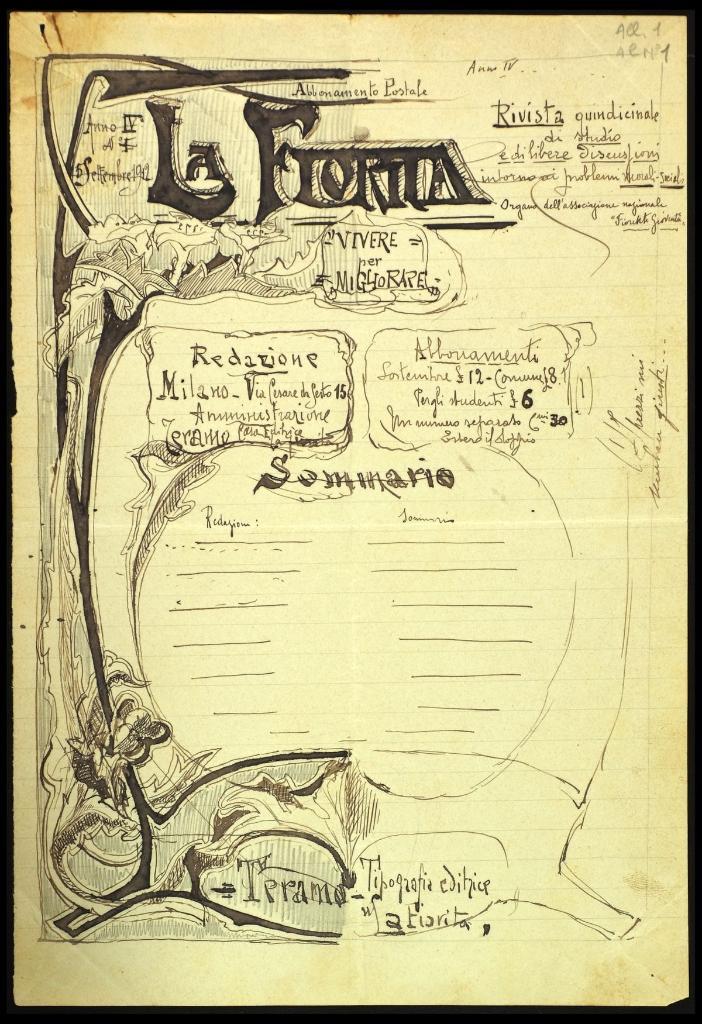 All. 1
All. N° 1
Anno IV...
Abbonamento Postale
Anno IV
N° I
15 Settembre 1912
La Fiorita
Rivista quindicinale
di studio
e di libere discussioni
intorno ai problemi Morali-Sociali
Organo dell'associazione nazionale
"Fiorita Gioventù"
"VIVERE =
per
= MIGLIORARE"
Redazione
Milano - Via Cesare da Sesto 15
Amministrazione
Teramo Casa Editrice
La Fiorita
Abbonamenti
Sostenitore £ 12 - Comune £ 8.
Per gli studenti £ 6
Un numero separato C.mi 30
Estero il doppio
i prezzi mi
giusti...
Sommario
Redazione:
Sommario
= Teramo - Tipografia editrice
"La Fiorita"